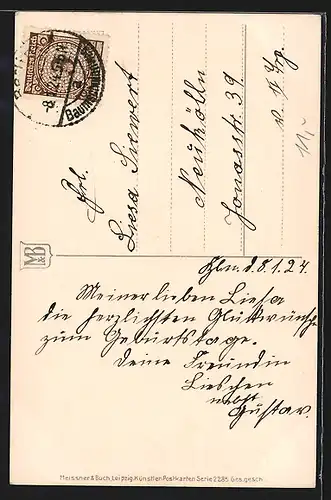 Frl.
Liesa Siewert
Neukölln
Jonasstr. 39.
v. IV Trg.
M&B
Bln. d. 8.1.24.
Meiner lieben Liesa
die herzlichsten Glückwünsche
zum Geburtstage.
Deine Freundin
Lieschen
nebst
Gustav.
Meissner & Buch, Leipzig. Künstler-Postkarten Serie 2285 Ges. gesch.